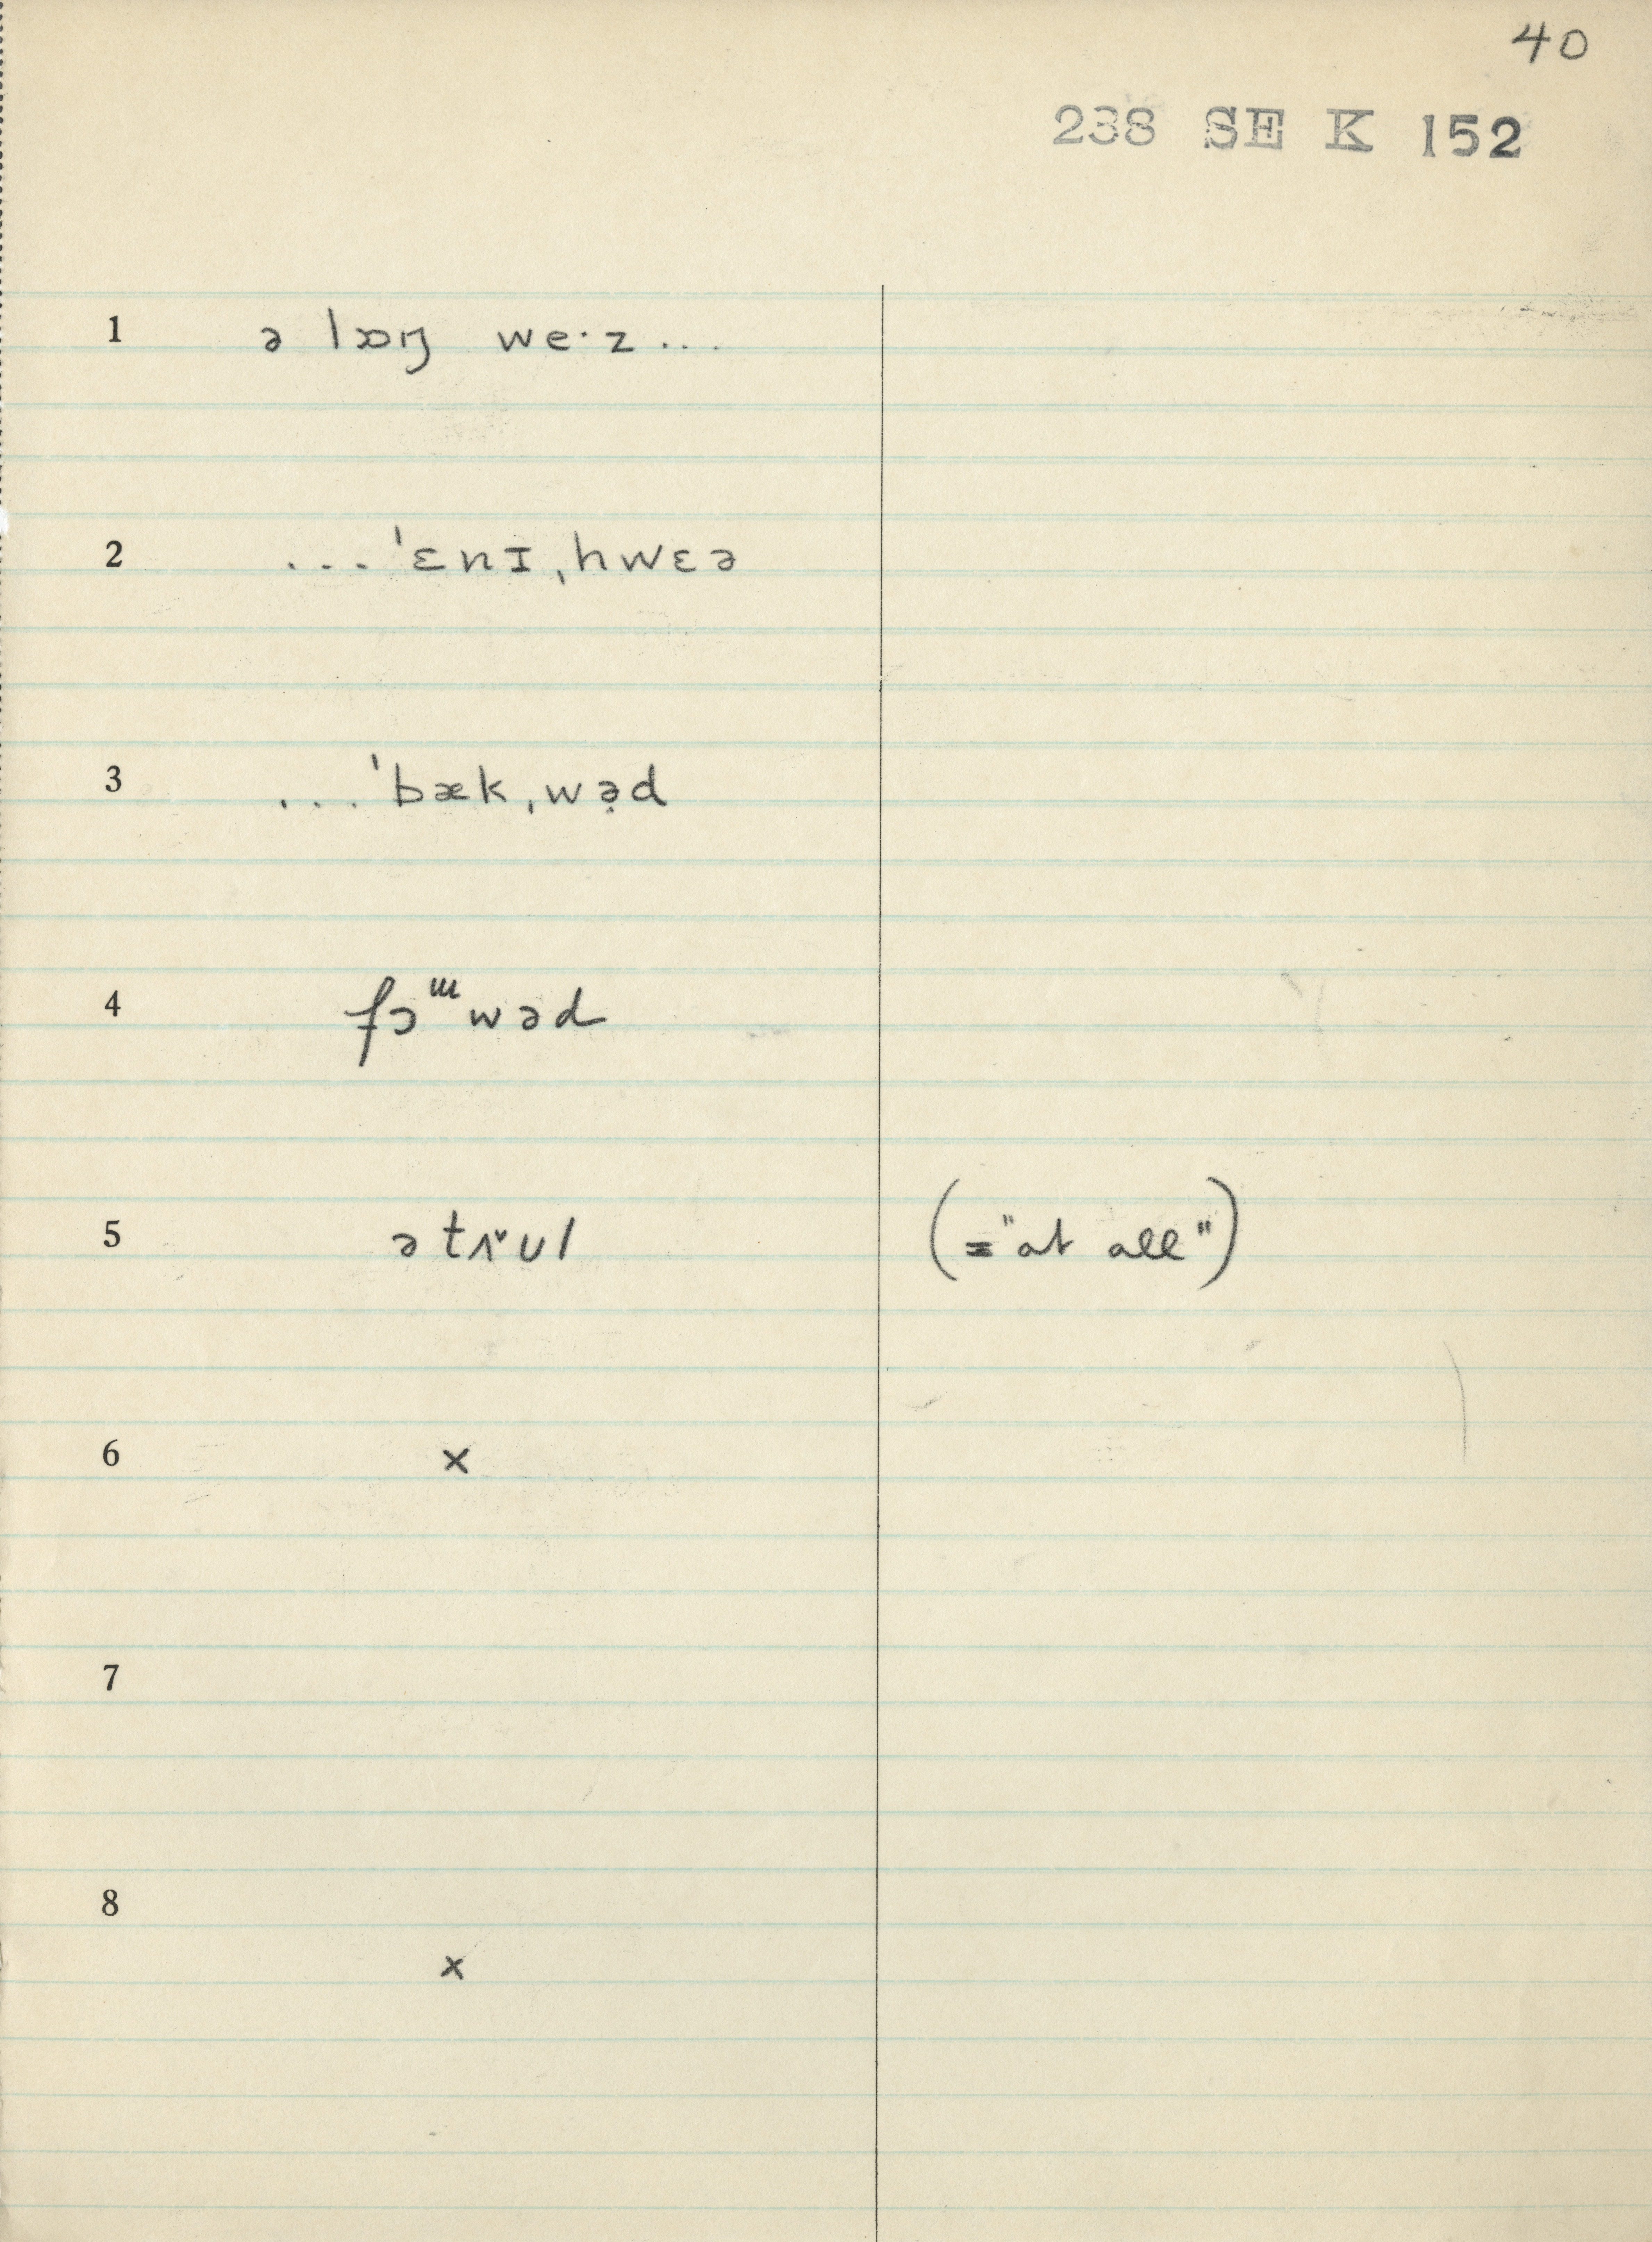 40
238 SE K 152
1 ə lɒŋ we·z...
2 ...ˈɛnɪˌhwɛə
3 ...ˈbækˌwə̣d
4 fɔɯwəd
5 ətʌ˅ʊl (="at all")
6 x
7
8 x